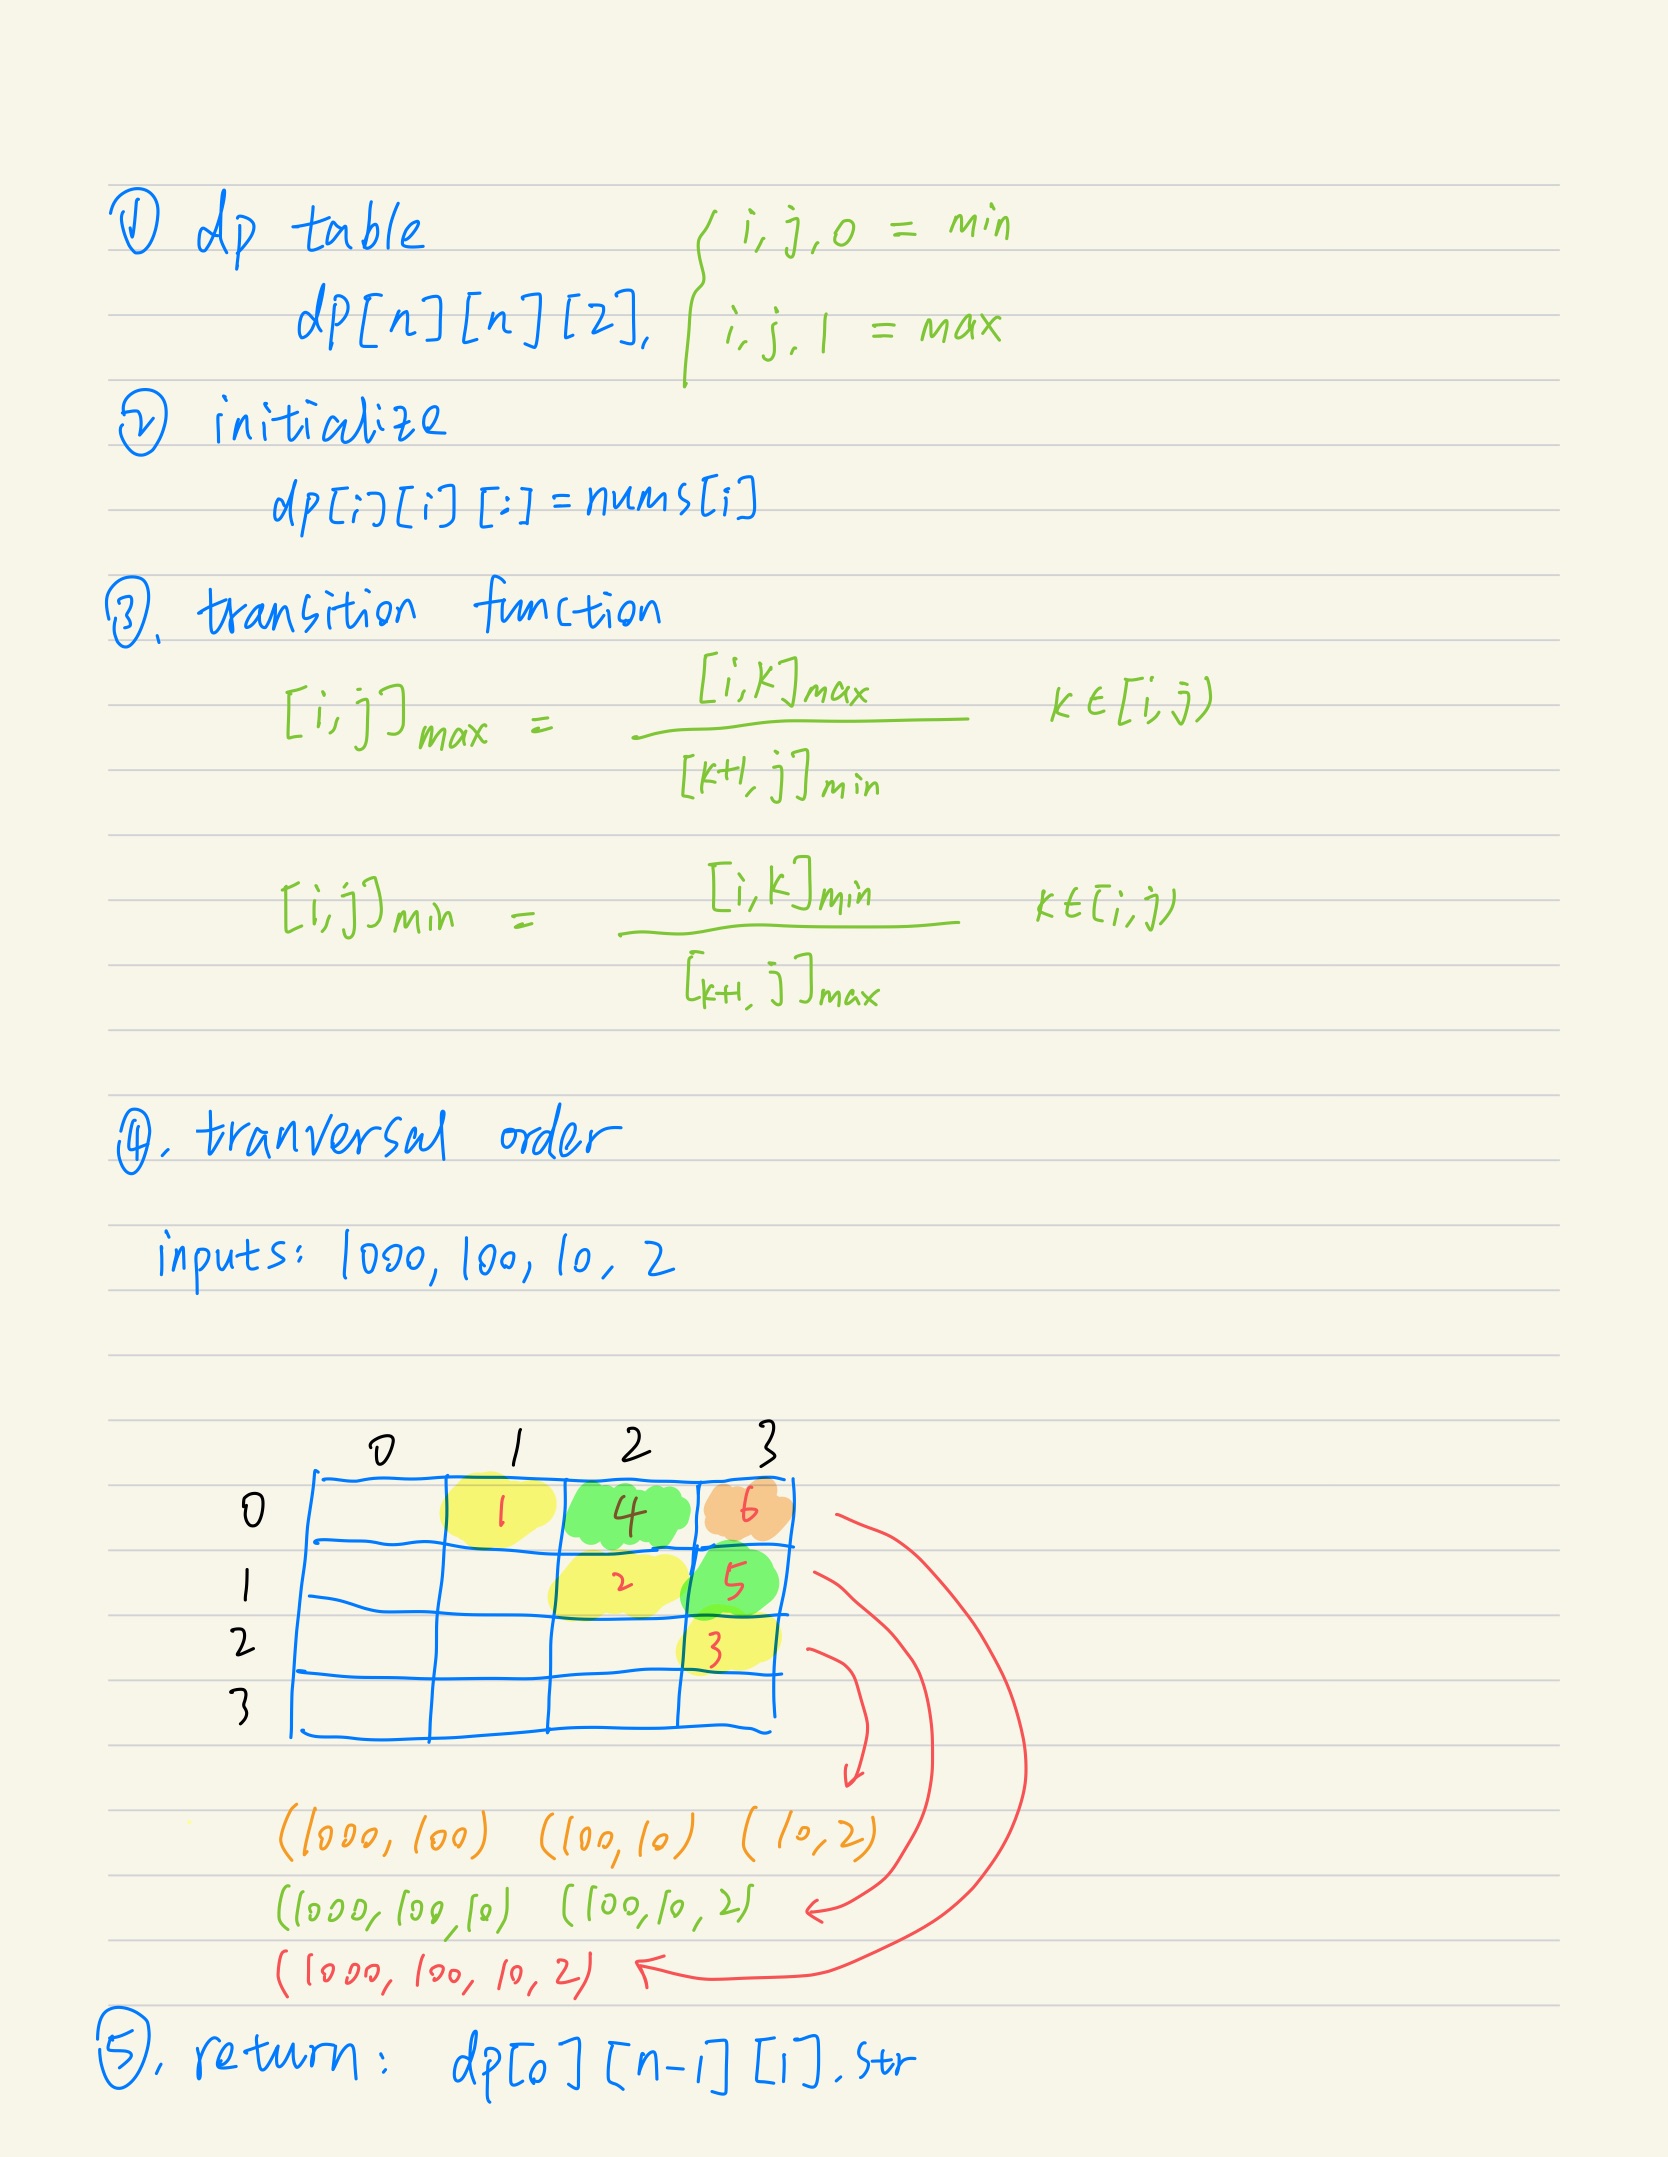 ① dp table
i, j, 0 = min
dp[n][n][2],
i, j, 1 = max
② initialize
dp[i][i][:] = nums[i]
③. transition function
[i, j]max = [i, k]max / [k+1, j]min k∈[i, j)
[i, j]min = [i, k]min / [k+1, j]max k∈[i, j)
④. tranversal order
inputs: 1000, 100, 10, 2
0 1 2 3
0 1 4 6
1 2 5
2 3
3
(1000, 100) (100, 10) (10, 2)
(1000, 100, 10) (100, 10, 2)
(1000, 100, 10, 2)
⑤. return: dp[0][n-1][1].str